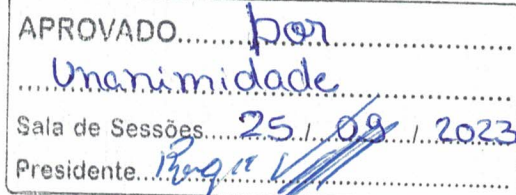 APROVADO.....por
Unanimidade
Sala de Sessões.....25./.09./.2023
Presidente